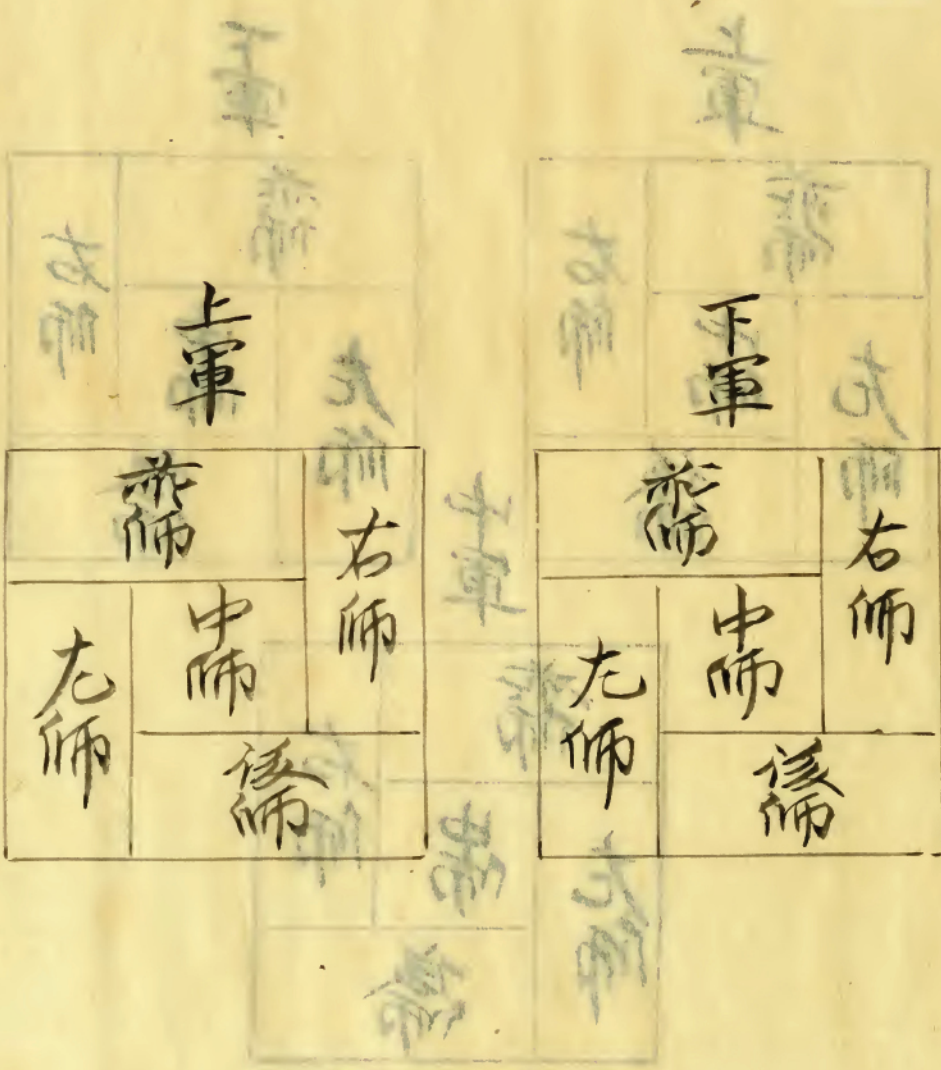 下軍
前師
右師
中師
左師
後師
上軍
前師
右師
中師
左師
後師